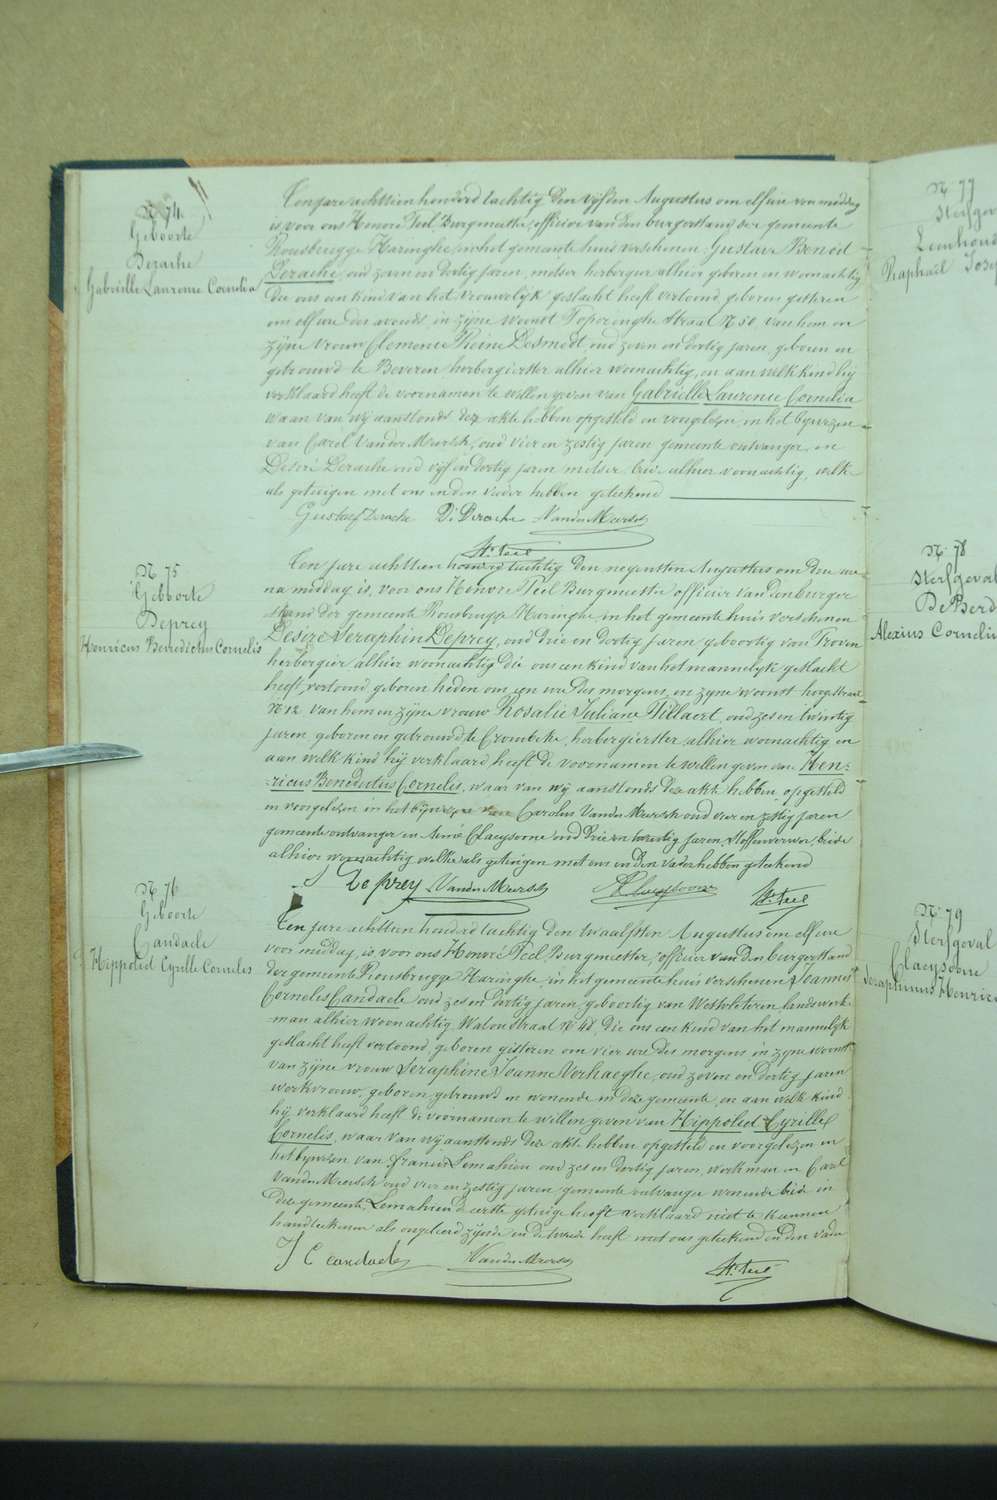 N. 74
Geboorte
Derache
Gabriëlle Laurence Cornelia
Ten jare achttien honderd tachtig den vijfden Augustus om elf ure voormiddag
is, voor ons Honoré Teel Burgmeester, officier van den burgerstand der gemeente
Rousbrugge Haringhe, in het gemeente huis verschenen Gustave Benoit
Derache, oud zeven en dertig jaren, metser herbergier alhier geboren en woonachtig
die ons een kind van het vrouwelijk geslacht heeft vertoond, geboren gisteren
om elf ure des avonds, in zijne woonst Poperinghe Straat N. 50, van hem en
zijne vrouw Clemence Reine Desmedt, oud zeven en dertig jaren, geboren en
gebrouwd te Beveren herbergierster alhier woonachtig, en aan welk kind hij
verklaard heeft de voornamen te willen geven van Gabriëlle Laurence Cornelia
waar van wij aanstonds deze akte hebben opgesteld en voorgelezen, in het bijwezen
van Carel Vander Meersch, oud vier en zestig jaren gemeente ontvanger en
Desiré Derache oud vijf en dertig jaren metser beide alhier woonachtig, welke
als getuigen met ons en den vader hebben geteekend
Gustaef Derache D. Derache Vander Meersch
H. Teel
N. 75
Geboorte
Deprey
Henricus Benedictus Cornelis
Ten jare achttien honderd tachtig den negensten Augustus om drie ure
na middag is, voor ons Honoré Teel Burgmeester officier van den burger
stand der gemeente Rousbrugge Haringhe, in het gemeente huis verschenen
Desiré Seraphin Deprey, oud drie en dertig jaren geboortig van Proven
herbergier alhier woonachtig die ons een kind van het mannelijk geslacht
heeft vertoond geboren heden om een ure des morgens, in zijne woonst hooge Straat
N. 12 van hem en zijne vrouw Rosalie Juliane Willaert, oud zes en twintig
jaren geboren en gebrouwd te Crombeke, herbergierster alhier woonachtig en
aan welk kind hij verklaard heeft de voornamen te willen geven van Hen-
-ricus Benedictus Cornelis, waar van wij aanstonds deze akte hebben opgesteld
en voorgelezen in het bijwezen van Carolus Vander Meersch oud vier en zestig jaren
gemeente ontvanger en Aimé Claeysoone oud drie en twintig jaren, stoffenverwer, beide
alhier woonachtig welke als getuigen met ons en den vader hebben geteekend
De prey Vander Meersch Claeysoone H. Teel
N. 76
Geboorte
Candaele
Hippoliet Cyrille Cornelis
Ten jare achttien honderd tachtig den twaalfsten Augustus om elf ure
voor middag, is voor ons Honoré Teel Burgmeester, officier van den burgerstand
der gemeente Rousbrugge Haringhe, in het gemeente huis verschenen Joannes
Cornelis Candaele oud zes en dertig jaren, geboortig van Westvleteren, landswerk-
man alhier woonachtig Watou Straat N. 48, die ons een kind van het mannelijk
geslacht heeft vertoond, geboren gisteren om vier ure des morgens in zijne woonst
van zijne vrouw Seraphine Joanne Verhaeghe, oud zeven en dertig jaren
werkvrouw, geboren gebrouwd en wonende in deze gemeente, en aan welk kind
hij verklaard heeft de voornamen te willen geven van Hippoliet Cyrille
Cornelis, waar van wij aanstonds deze akte hebben opgesteld en voorgelezen in
het bijwezen van Francis Lemahieu oud zes en dertig jaren, werkman en Carel
Vander Meersch oud vier en zestig jaren gemeente ontvanger wonende beide in
deze gemeente, Lemahieu de eerste getuige heeft verklaard niet te kunnen
handteekenen als ongeleerd zijnde en de tweede heeft met ons geteekend en den vader
J C candaele Vander Meersch H. Teel
N. 77
Sterfgev
Raphaël Jose
N. 78
Sterfgeval
De Berd
Alexius Cornelis
N. 79
Sterfgeval
Claeysoone
Seraphinus Henric